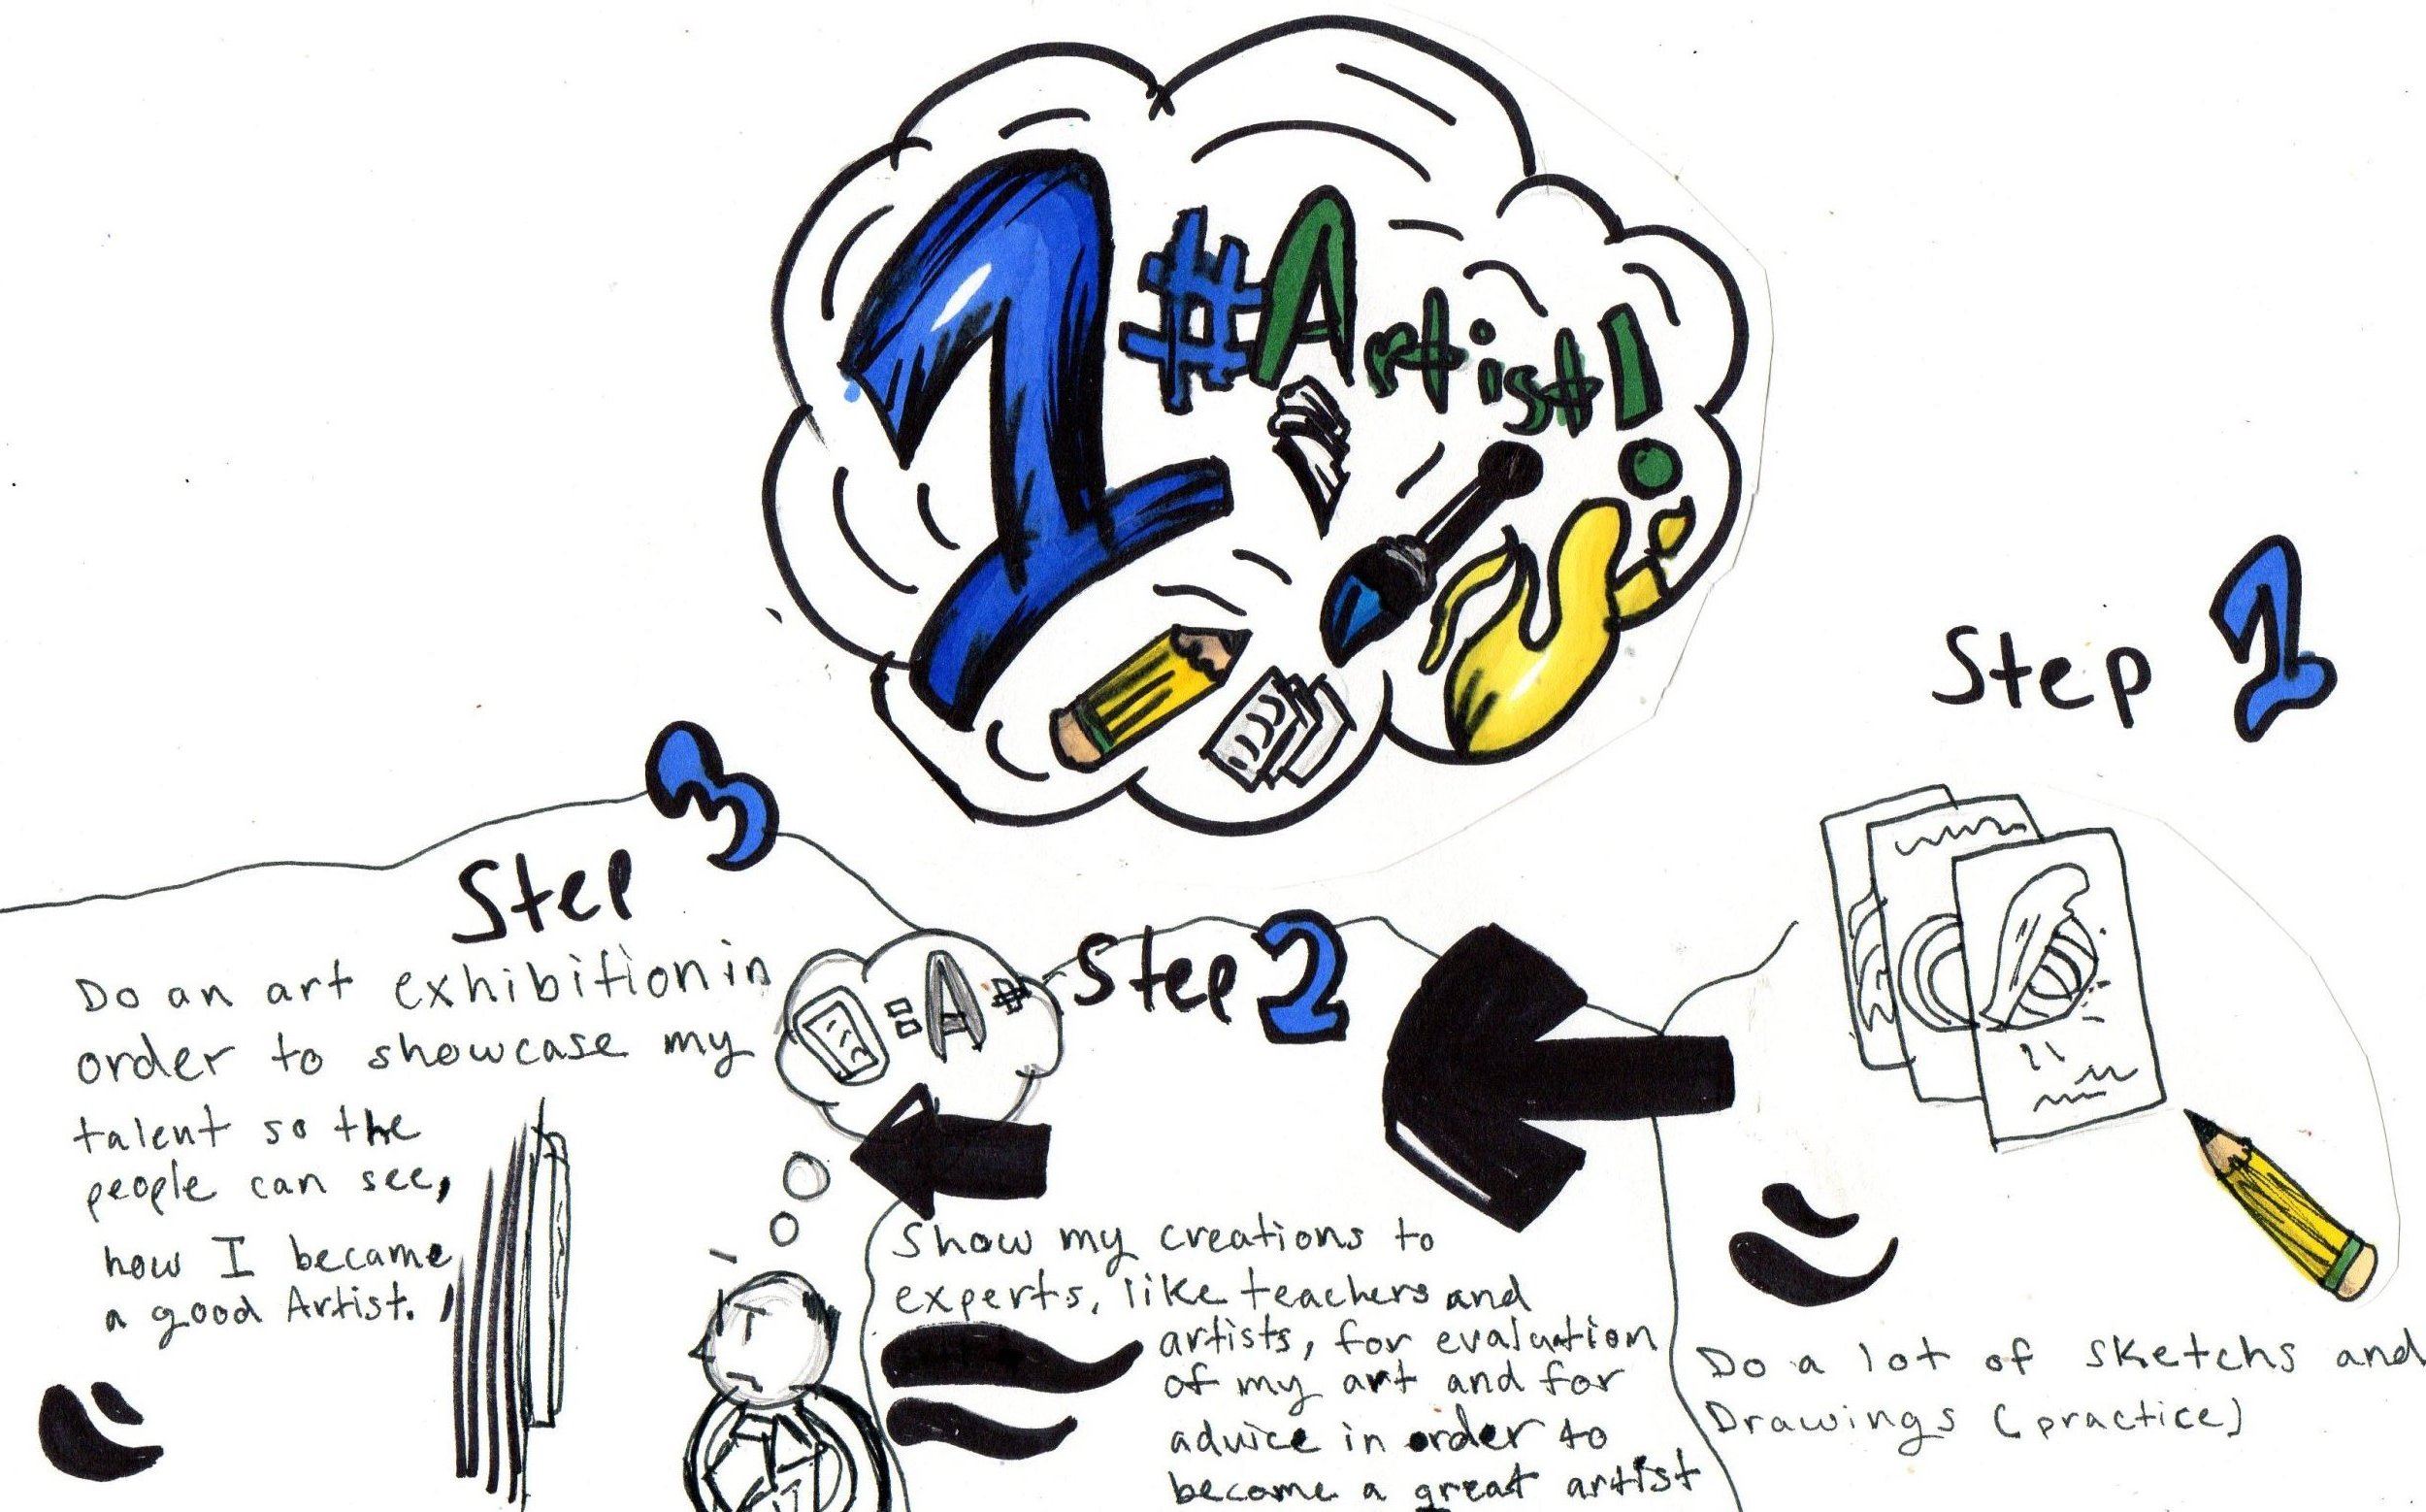 1 #Artist!
Step 1
Do a lot of sketchs and
Drawings (practice)
Step 2
Show my creations to
experts, like teachers and
artists, for evaluation
of my art and for
advice in order to
become a great artist
Step 3
Do an art exhibition in
order to showcase my
talent so the
people can see,
how I became
a good Artist.
A+